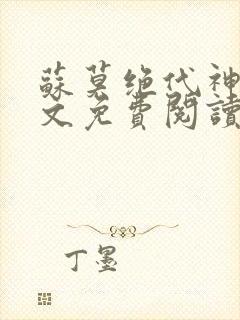 蘇莫绝代神
文免費閱讀
丁墨